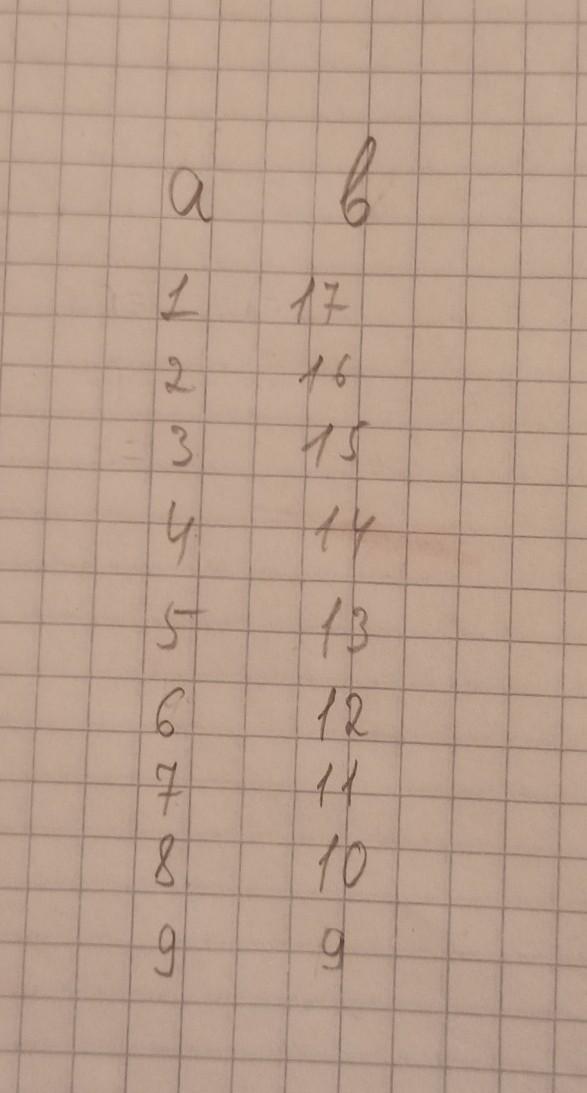 a в
1 17
2 16
3 15
4 14
5 13
6 12
7 11
8 10
9 9